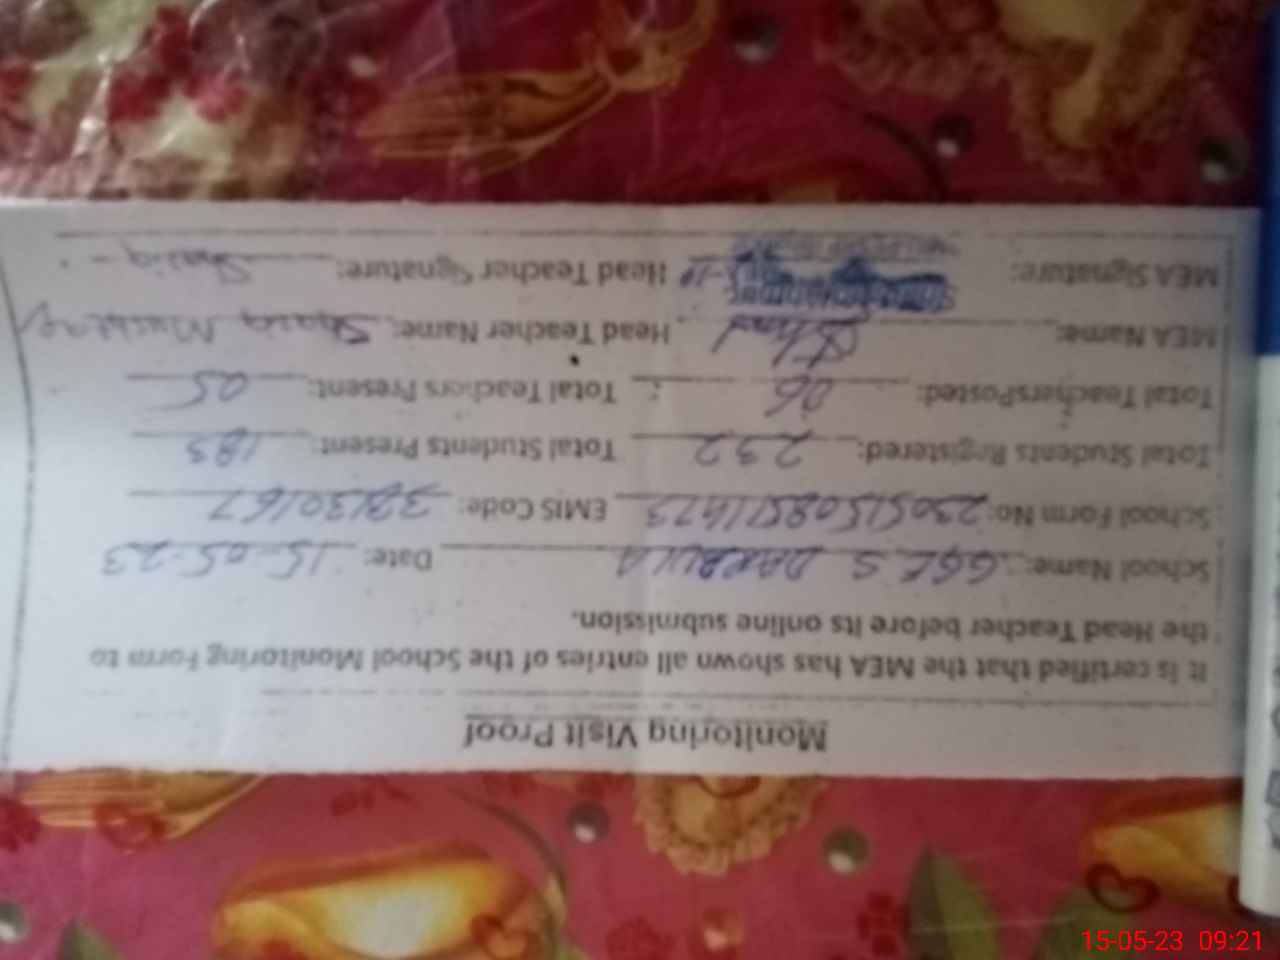 Monitoring Visit Proof
It is certified that the MEA has shown all entries of the School Monitoring Form to
the Head Teacher before its online submission.
School Name: GGES DARBULA Date: 15-05-23
School Form No: EMIS Code:
Total Students Registered: 232 Total Students Present: 183
Total TeachersPosted: 06 Total Teachers Present: 05
MEA Name: Head Teacher Name: Shaiq Mushtaq
MEA Signature: Head Teacher Signature: Shaiq
15-05-23 09:21